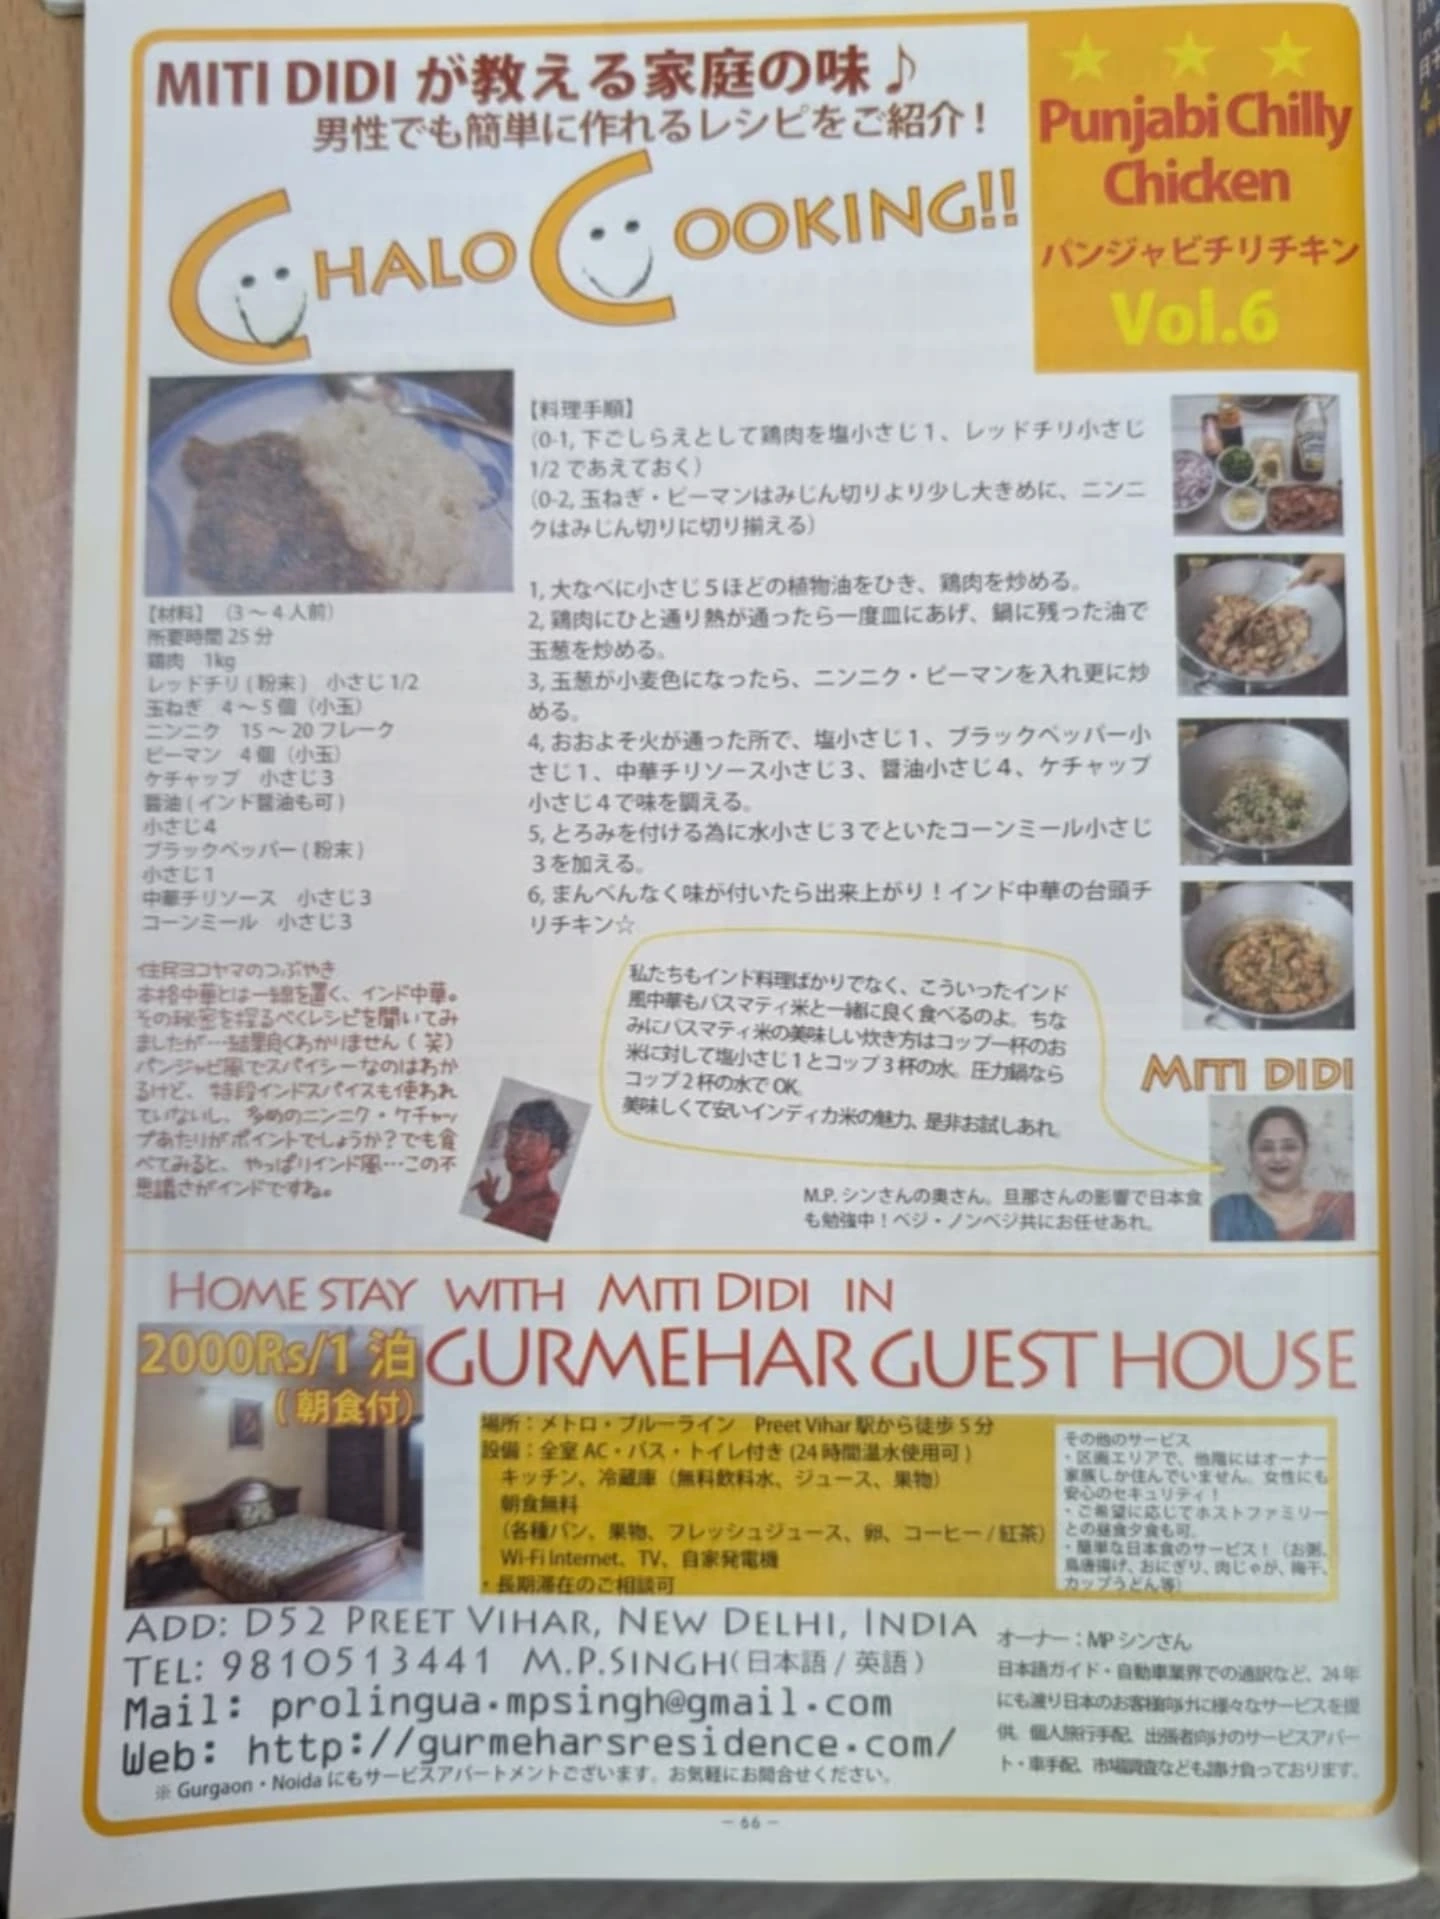 MITI DIDI が教える家庭の味♪
男性でも簡単に作れるレシピをご紹介！
CHALO COOKING!!
Punjabi Chilly
Chicken
パンジャビチリチキン
Vol.6
【材料】（3～4人前）
所要時間 25 分
鶏肉　1kg
レッドチリ ( 粉末 )　小さじ 1/2
玉ねぎ　4～5個（小玉）
ニンニク　15～20 フレーク
ピーマン　4個（小玉）
ケチャップ　小さじ3
醤油 ( インド醤油も可 )
小さじ4
ブラックペッパー ( 粉末 )
小さじ1
中華チリソース　小さじ3
コーンミール　小さじ3
【料理手順】
（0-1, 下ごしらえとして鶏肉を塩小さじ1、レッドチリ小さじ
1/2 であえておく）
（0-2, 玉ねぎ・ピーマンはみじん切りより少し大きめに、ニンニ
クはみじん切りに切り揃える）
1, 大なべに小さじ5ほどの植物油をひき、鶏肉を炒める。
2, 鶏肉にひと通り熱が通ったら一度皿にあげ、鍋に残った油で
玉葱を炒める。
3, 玉葱が小麦色になったら、ニンニク・ピーマンを入れ更に炒
める。
4, おおよそ火が通った所で、塩小さじ1、ブラックペッパー小
さじ1、中華チリソース小さじ3、醤油小さじ4、ケチャップ
小さじ4で味を調える。
5, とろみを付ける為に水小さじ3でといたコーンミール小さじ
3を加える。
6, まんべんなく味が付いたら出来上がり！インド中華の台頭チ
リチキン☆
住民ヨコヤマのつぶやき
本格中華とは一線を置く、インド中華。
その秘密を探るべくレシピを聞いてみ
ましたが…結果良くわかりません（笑）
パンジャビ風でスパイシーなのはわか
るけど、特段インドスパイスも使われ
ていないし、多めのニンニク・ケチャッ
プあたりがポイントでしょうか？でも食
べてみると、やっぱりインド風…この不
思議さがインドですね。
私たちもインド料理ばかりでなく、こういったインド
風中華もバスマティ米と一緒に良く食べるのよ。ちな
みにバスマティ米の美味しい炊き方はコップ一杯のお
米に対して塩小さじ1とコップ3杯の水。圧力鍋なら
コップ2杯の水で OK。
美味しくて安いインディカ米の魅力、是非お試しあれ。
MITI DIDI
M.P. シンさんの奥さん。旦那さんの影響で日本食
も勉強中！ベジ・ノンベジ共にお任せあれ。
HOME STAY WITH MITI DIDI IN
GURMEHAR GUEST HOUSE
2000Rs/1 泊
（朝食付）
場所：メトロ・ブルーライン　Preet Vihar 駅から徒歩 5 分
設備：全室 AC・バス・トイレ付き (24 時間温水使用可 )
キッチン、冷蔵庫（無料飲料水、ジュース、果物）
朝食無料
（各種パン、果物、フレッシュジュース、卵、コーヒー / 紅茶）
Wi-Fi Internet、TV、自家発電機
・長期滞在のご相談可
その他のサービス
・区画エリアで、他階にはオーナー
家族しか住んでいません。女性にも
安心のセキュリティ！
・ご希望に応じてホストファミリー
との昼食夕食も可。
・簡単な日本食のサービス！（お粥、
鳥唐揚げ、おにぎり、肉じゃが、梅干、
カップうどん等）
ADD: D52 PREET VIHAR, NEW DELHI, INDIA
TEL: 9810513441 M.P.SINGH(日本語 / 英語 )
Mail: prolingua.mpsingh@gmail.com
Web: http://gurmeharsresidence.com/
※ Gurgaon・Noida にもサービスアパートメントございます。お気軽にお問合せください。
オーナー：MP シンさん
日本語ガイド・自動車業界での通訳など、24 年
にも渡り日本のお客様向けに様々なサービスを提
供。個人旅行手配、出張者向けのサービスアパー
ト・車手配、市場調査なども請け負っております。
— 66 —